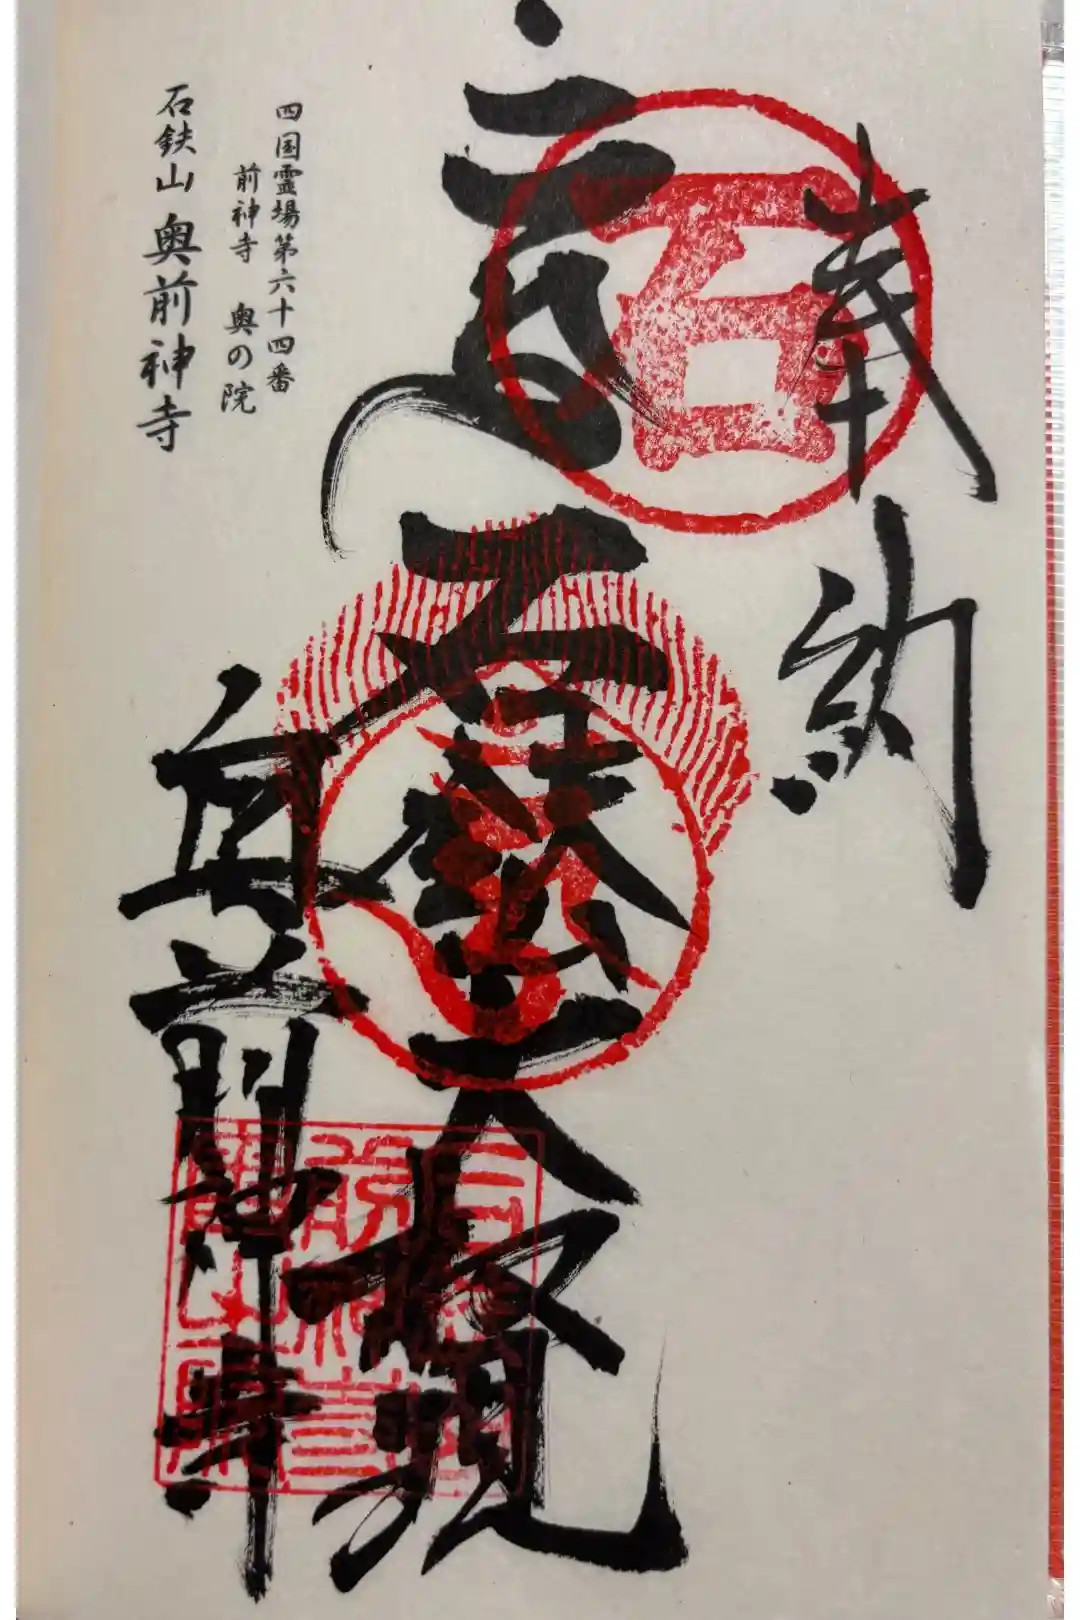 奉納
石
石鈇大権現
奥前神寺
四国霊場第六十四番
前神寺 奥の院
石鈇山 奥前神寺